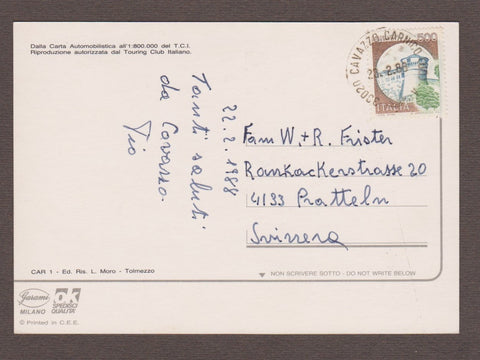 Dalla Carta Automobilistica all'1:800.000 del T.C.I.
Riproduzione autorizzata dal Touring Club Italiano.
22.2.1988
Tanti saluti
da Cavazzo.
Pio
500
ITALIA
33020 CAVAZZO CARNICO
Fam W.+R. Frister
Rankackerstrasse 20
4133 Pratteln
Svizzera
CAR 1 - Ed. Ris. L. Moro - Tolmezzo
NON SCRIVERE SOTTO - DO NOT WRITE BELOW
Garami
MILANO
ok
SPEDISCI
QUALITA'
© Printed in C.E.E.